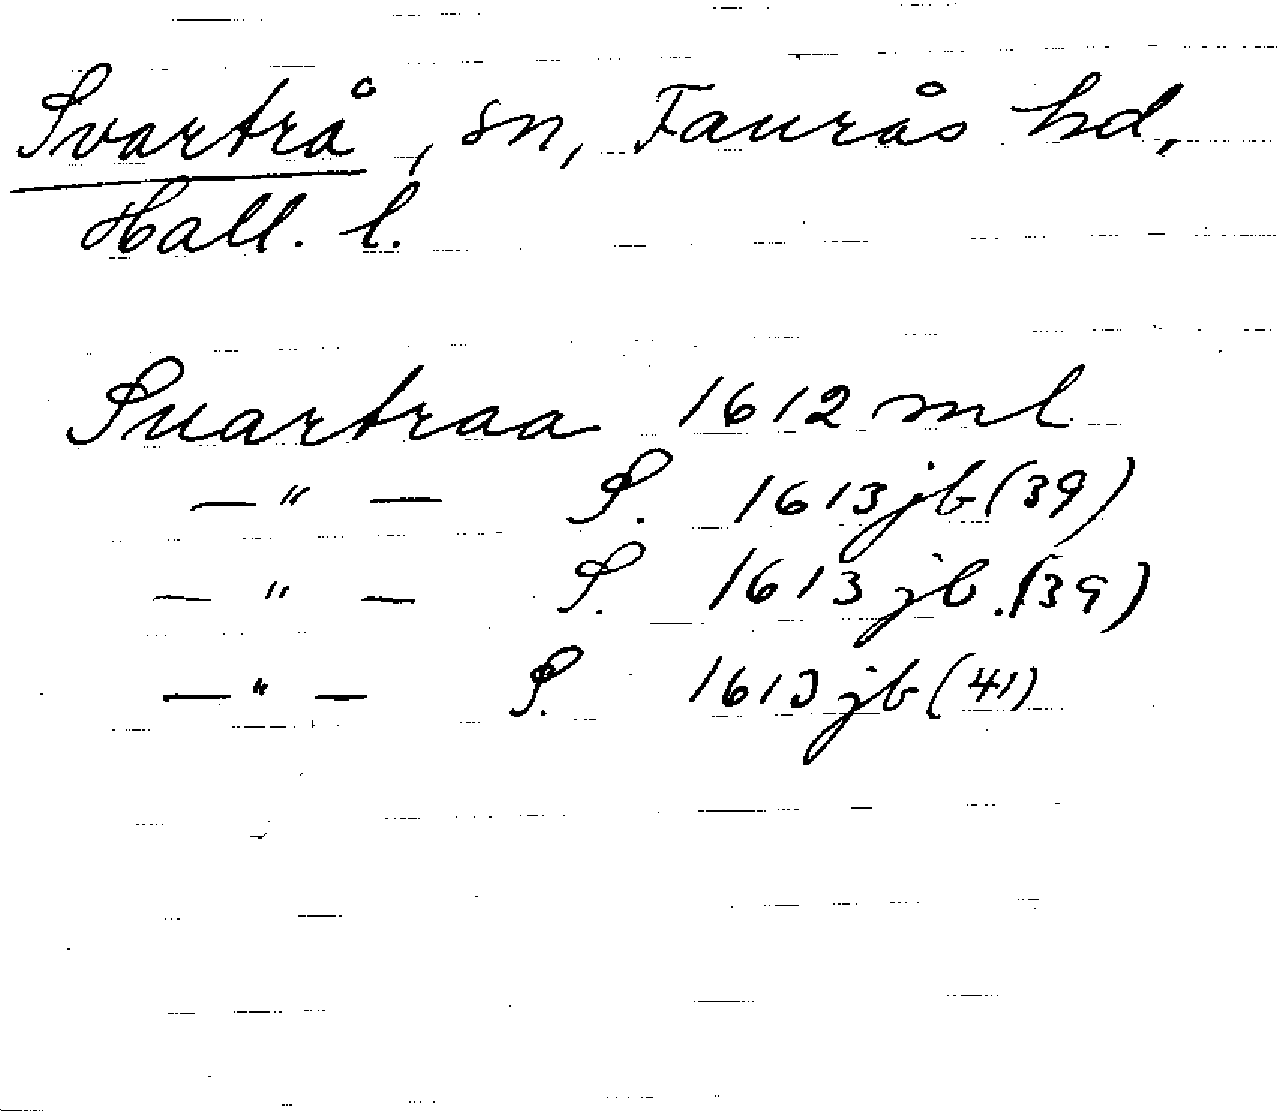 Svartrå, sn, Faurås hd,
Hall. l.
Suartraa 1612 ml
— " — S. 1613 jb (39)
— " — S. 1613 jb. (39)
— " — S. 1613 jb (41)